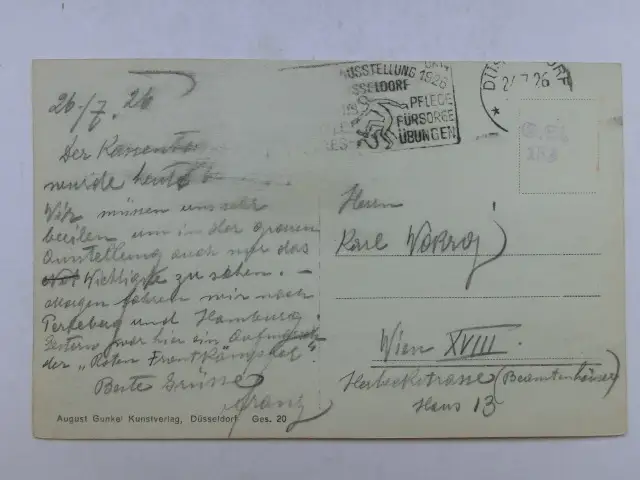 26./7.26
Der Kassen
wurde heute
Wir müssen uns sehr
beeilen um in der grossen
Ausstellung auch nur das
Wichtigste zu sehen. –
Morgen fahren wir nach
und Hamburg.
Gestern war hier ein
der „Roten Frontkämpfer"!
Beste Grüsse
Franz
August Gunkel Kunstverlag, Düsseldorf Ges. 20
AUSSTELLUNG 1926
SSELDORF
PFLEGE
FÜRSORGE
ÜBUNGEN
DÜS DORF
7.26
Herrn
Karl
Wien XVIII.
Herbeckstrasse (Beamtenhäuser)
Haus 13